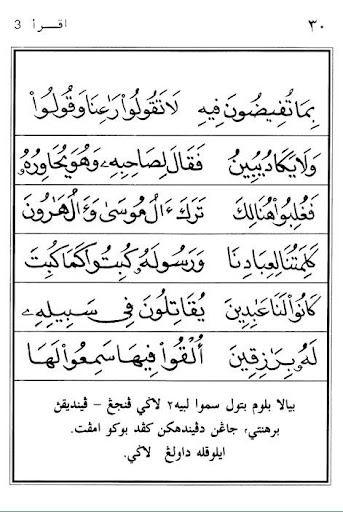 اقرأ 3
٣٠
بِمَا تُفِيضُونَ فِيهِ لَا تَقُولُوا۟ رَٰعِنَا وَقُولُوا۟
وَلَا يَكَادُ يُبِينُ فَقَالَ لِصَاحِبِهِۦ وَهُوَ يُحَاوِرُهُۥ
فَغُلِبُوا۟ هُنَالِكَ تَرَكَ ءَالُ مُوسَىٰ وَءَالُ هَٰرُونَ
كَلِمَتُنَا لِعِبَادِنَا وَرَسُولَهُۥ كُبِتُوا۟ كَمَا كُبِتَ
كَانُوا۟ لَنَا عَٰبِدِينَ يُقَاتِلُونَ فِى سَبِيلِهِۦ
لَهُۥ بِرَٰزِقِينَ أُلْقُوا۟ فِيهَا سَمِعُوا۟ لَهَا
بيلا بلوم بتول سموا لبيه٢ لاݢي ڤنجڠ – ڤينديقڽ
برهنتي، جاڠن دڤيندهكن كڤد بوكو امڤت.
ايلوقله داولڠ لاݢي.